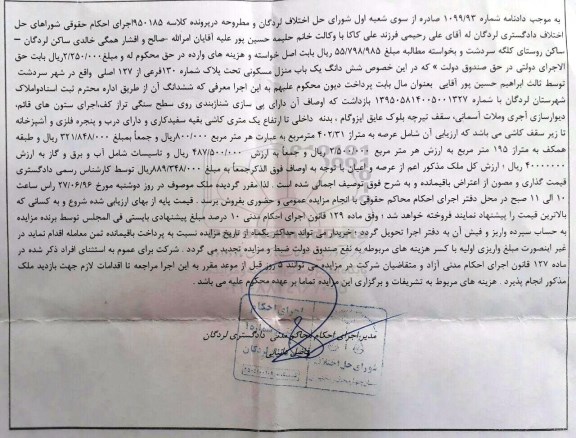 به موجب دادنامه شماره ۱۰۹۹/۹۳ صادره از سوی شعبه اول شورای حل اختلاف لردگان و مطروحه درپرونده کلاسه ۹۵۰۱۸۵اجرای احکام حقوقی شوراهای حل
اختلاف دادگستری لردگان له آقای علی رحیمی فرزند علی کاکا با وکالت خانم حلیمه حسین پور علیه آقایان امرالله -صالح و افشار همگی خالدی ساکن لردگان –
ساکن روستای کلگه سردشت و بخواسته مطالبه مبلغ ۵۵/۷۹۸/۹۸۵ ریال بابت اصل خواسته و هزینه های وارده در حق محکوم له و مبلغ۲/۲۵۰/۰۰۰ریال بابت حق
الاجرای دولتی در حق صندوق دولت » که در این خصوص شش دانگ یک باب منزل مسکونی تحت پلاک شماره ۱۳۰فرعی از ۱۲۷ اصلی واقع در شهر سردشت
توسط ثالث ابراهیم حسین پور آقایی بعنوان مال بابت پرداخت دیون محکوم علیهم به این اجرا معرفی که ششدانگ آن از طریق اداره محترم ثبت اسنادواملاک
شهرستان لردگان با شماره ۱۳۹۵۰۵۸۱۴۰۰۵۰۰۱۳۲۷ بازداشت که اوصاف آن دارای پی سازی شناژبندی روی سطح سنگی تراز کف،اجرای ستون های قائم،
دیوارسازی آجری وملات آسمانی، سقف تیرچه بلوک عایق ایزوگام ، بدنه داخلی تا ارتفاع یک متری کاشی بقیه سفیدکاری و دارای درب و پنجره فلزی و آشپزخانه
تا زیر سقف کاشی می باشد که ارزیابی آن شامل عرصه به متراژ ۴۰۲/۳۱ مترمربع به عبارت هر متر مربع ۸۰۰/۰۰۰ریال و جمعاً بمبلغ ۳۲۱/۸۴۸/۰۰۰ و طبقه
همکف به متراژ ۱۹۵ متر مربع به ارزش هر متر مربع ۲/۵۰۰/۰۰۰ و جمعاً به ارزش ۴۸۷/۵۰۰/۰۰۰ ریال و تاسیسات شامل آب و برق و گاز به ارزش
ریال ؛ ارزش کل ملک مذکور اعم از عرصه و اعیان با توجه به اوصاف فوق الذکرجمعاً به مبلغ ۸۸۹/۳۴۸/۰۰۰ریال توسط کارشناس رسمی دادگستری
قیمت گذاری و مصون از اعتراض باقیمانده و به شرح فوق توصیف اجمالی شده است . لذا مقرر گردیده ملک موصوف در روز دوشنبه مورخ ۲۷/۰۶/۹۶ راس ساعت
۱۰ الی ۱۱ صبح در محل دفتر اجرای احکام محاکم حقوقی با انجام مزایده عمومی و حضوری بفروش برسد . قیمت پایه از بهای ارزیابی شده شروع و به کسانی که
بالاترین قیمت را پیشنهاد نمایند فروخته خواهد شد ؛ وفق ماده ۱۲۹ قانون اجرای احکام مدنی ۱۰ درصد مبلغ پیشنهادی بایستی فی المجلس توسط برنده مزایده
به حساب سپرده واریز و فیش آن به دفتر اجرا تحویل گردد . خریدار می تواند حداکثر یکماه از تاریخ مزایده نسبت به پرداخت باقیمانده ثمن معامله اقدام نماید در
غیر اینصورت مبلغ واریزی اولیه با کسر هزینه های مربوطه به نفع صندوق دولت ضبط و مزایده تجدید می گردد . شرکت برای عموم به استثنای افراد ذکر شده در
ماده ۱۲۷ قانون اجرای احکام مدنی آزاد و متقاضیان شرکت در مزایده می توانند ۵ روز قبل از موعد مقرر به این اجرا مراجعه تا اقدامات لازم جهت بازدید ملک
مذکور انجام پذیرد . هزینه های مربوط به تشریفات و برگزاری این مزایده تماما بر عهده محکوم علیه می باشد .
اجرای احکام
مدیر اجرای احکام محاکم مدنی دادگستری لردگان
شورای حل اختلاف